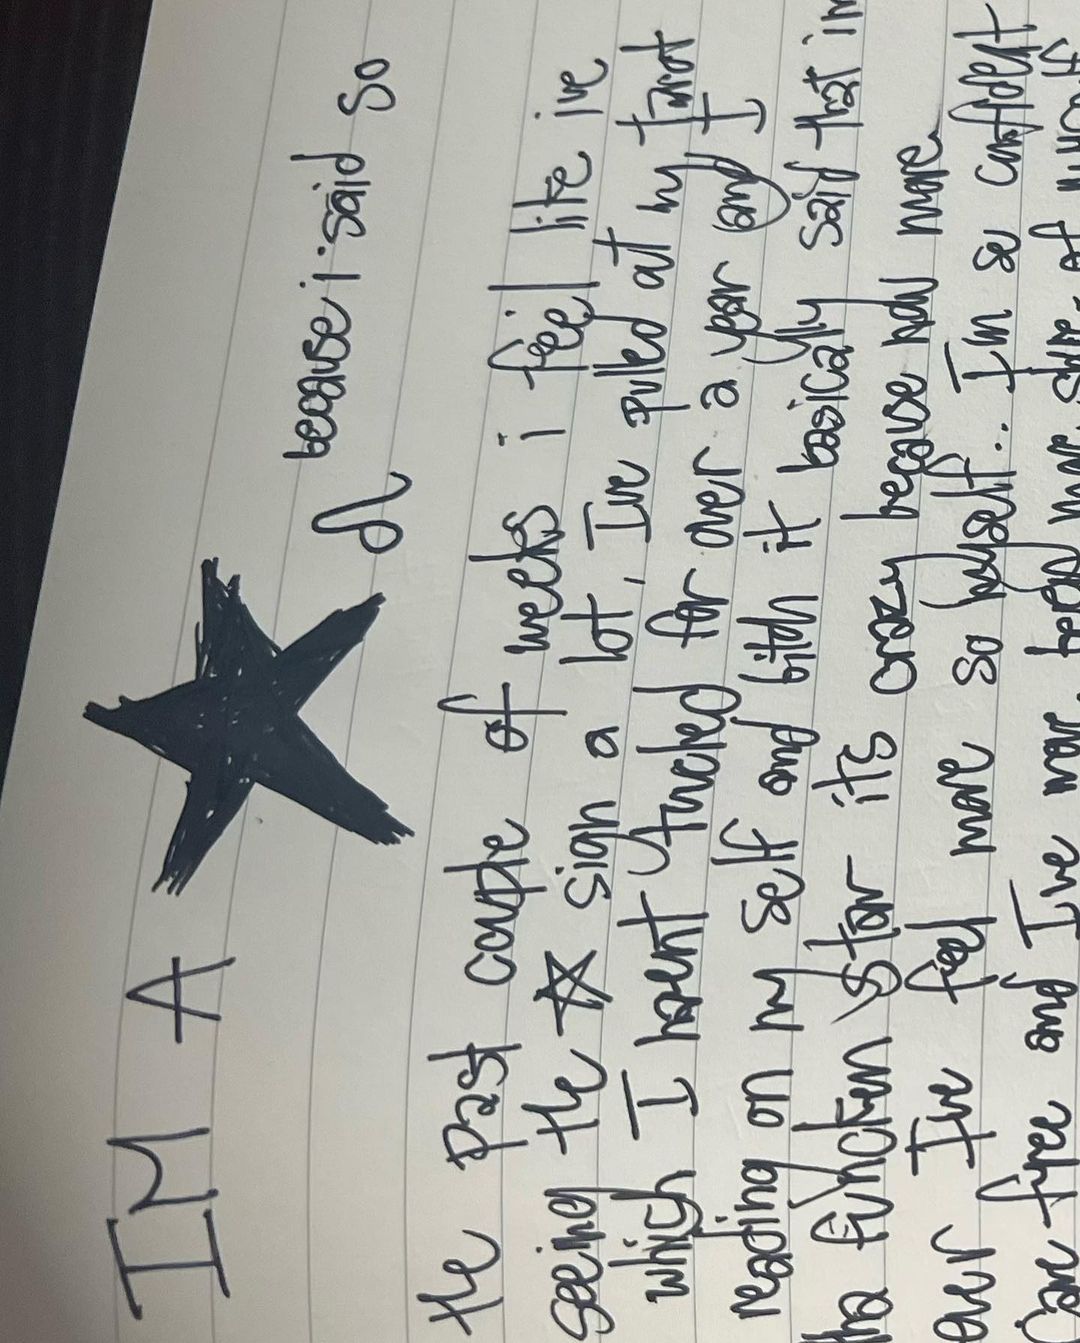 IM A
because i said so
the past couple of weeks i feel like ive
seeing the sign a lot, Ive pulled at my tarot
which I havent tuched for over a year and I
reading on my self and bitch it basically said that im
tha fuhcken star its crazy because now more
ever Ive feel more so myself.. Im so confident
Care free and Ive